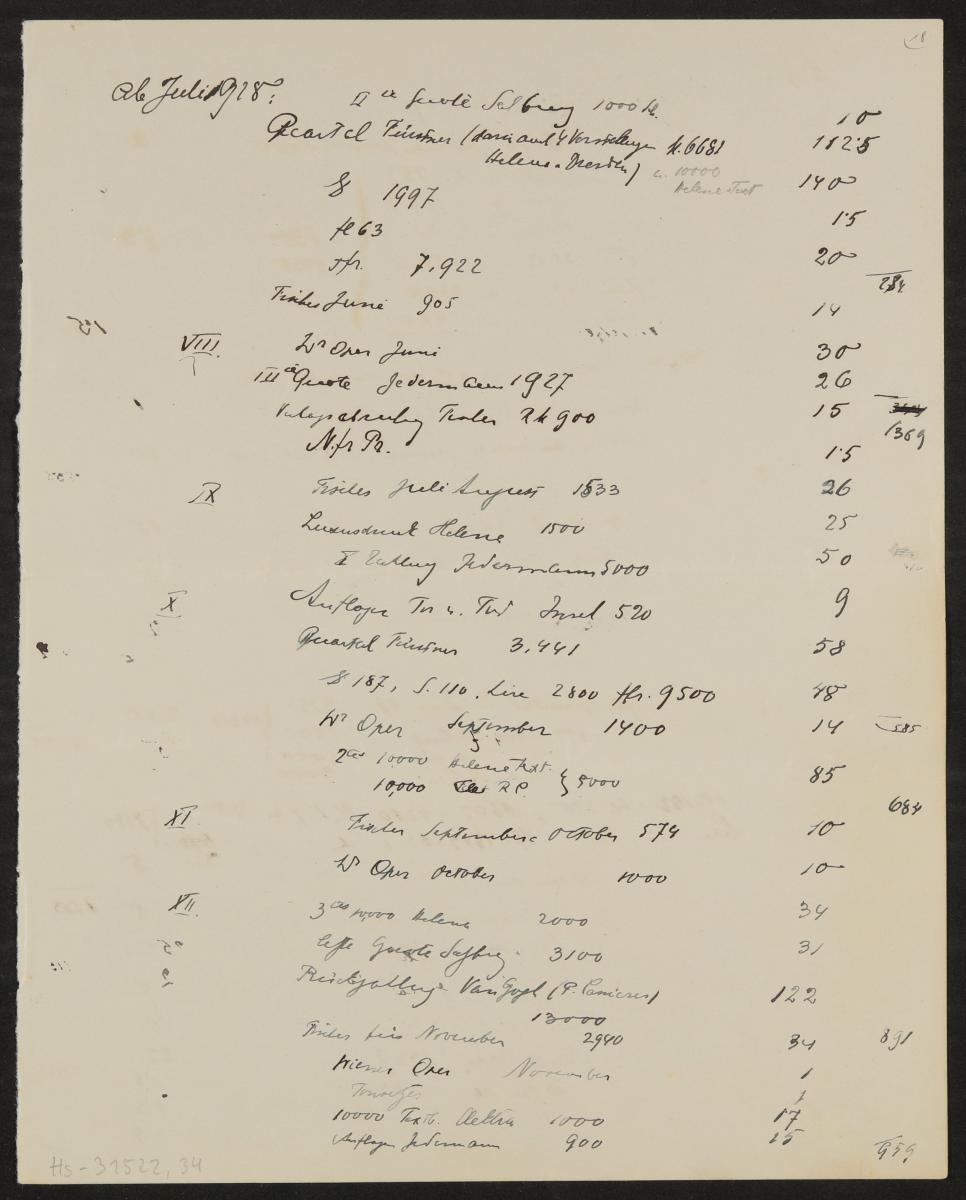 ab Juli 1928:
IIte Quote Salzburg 1000 M. 10
Quartal Fürstner (darin auch 4 Vorstellungen M. 6681 112·5
Helena Dresden) u. 10000
Helene Text
$ 1997 140
fl 63 1·5
sfr. 7,922 20
284
Fischer Juni 905 14
VIII. Wr Oper Juni 30
IIIte Quote Jedermann 1927 26
Fischer Rm 900 15
369
N. fr Pr. 1·5
IX Fischer Juli August 1533 26
Luxusdruck Helena 1500 25
Zahlung Jedermann 5000 50
X Auflagen Tor u. Tod Insel 520 9
Quartal Fürstner 3,441 58
$ 187, S. 110, Lire 2800 ffr. 9500 48
Wr Oper September 1400 14
585
2tes 10000 Helene Text
10,000 R.C. } 5000 85
684
XI. Fischer September October 574 10
Wr Oper October 1000 10
XII. 3tes 10,000 Helena 2000 34
lefte Quote Salzburg 3100 31
Rückzahlung Van Gogh (P. Cassirer) 122
13000
Fischer bis November 2940 34
891
Wiener Oper November 1
1
10000 Textb. Elektra 1000 17
Auflagen Jedermann 900 15
959
Hs-31522,34